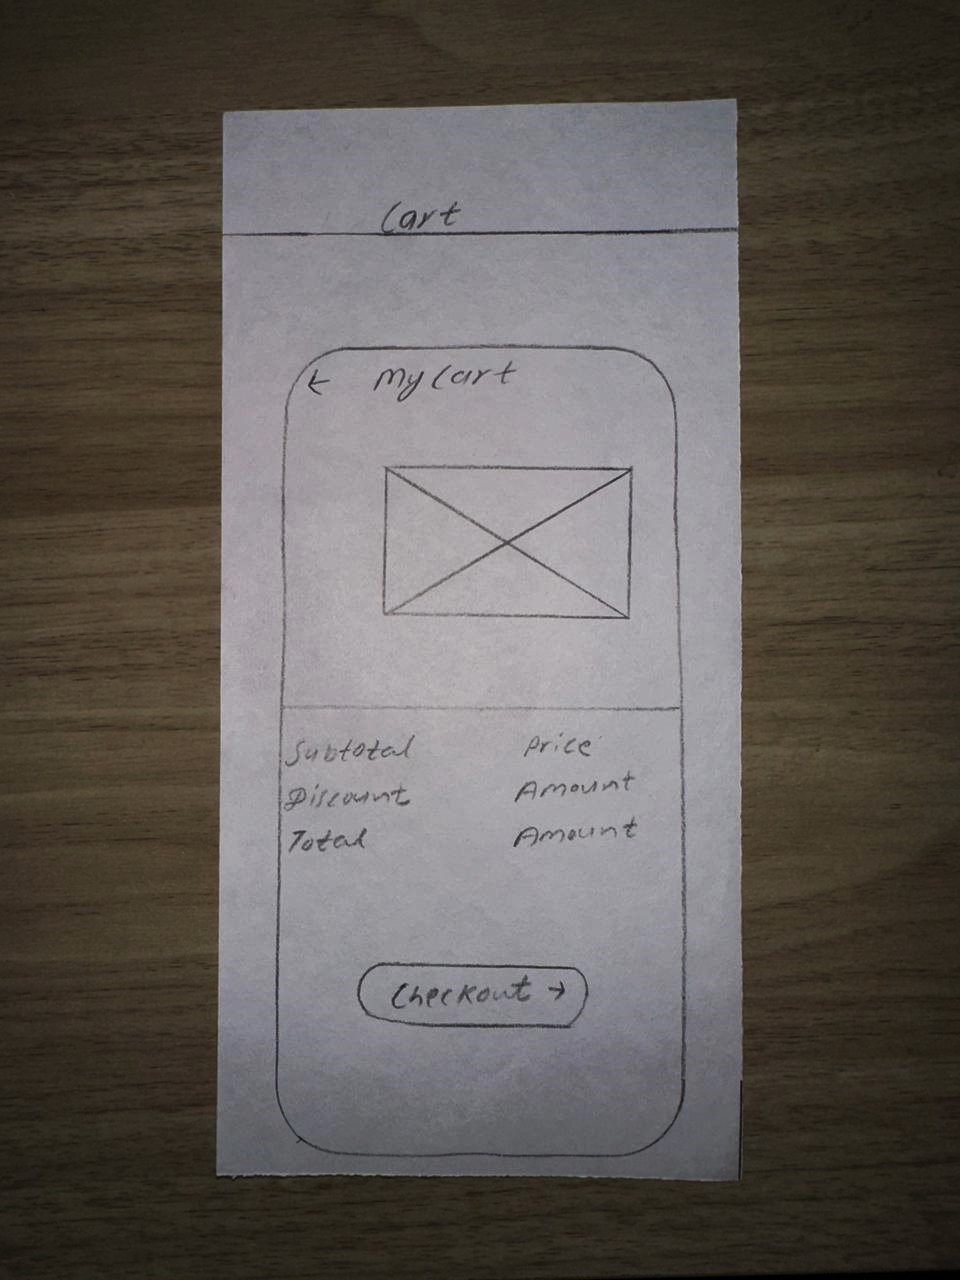 Cart
← My Cart
Subtotal Price
Discount Amount
Total Amount
Checkout →